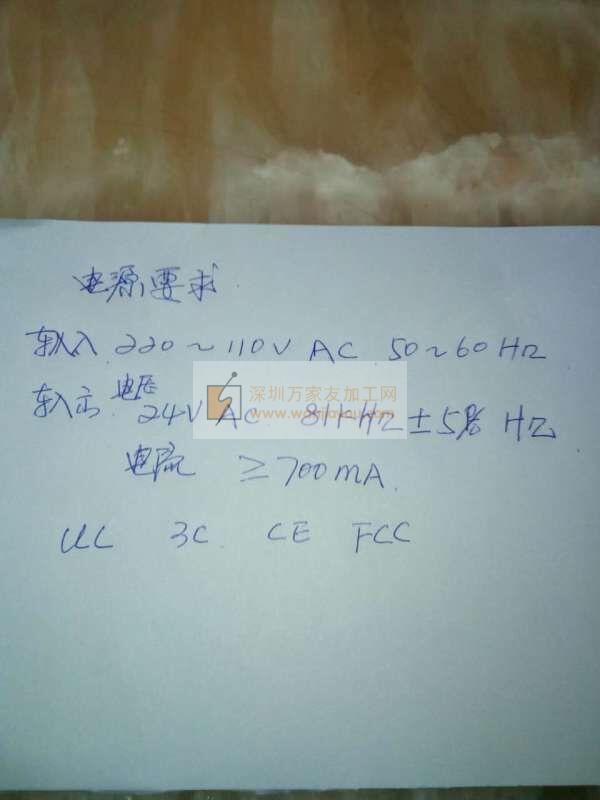 电源要求
输入 220~110V AC 50~60Hz
输出 电压 24V AC 811Hz ±5% Hz
电流 ≥700mA
UL 3C CE FCC
深圳万家友加工网